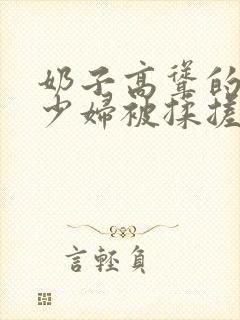 奶子高耸的
少婦被揉搓
言輕負